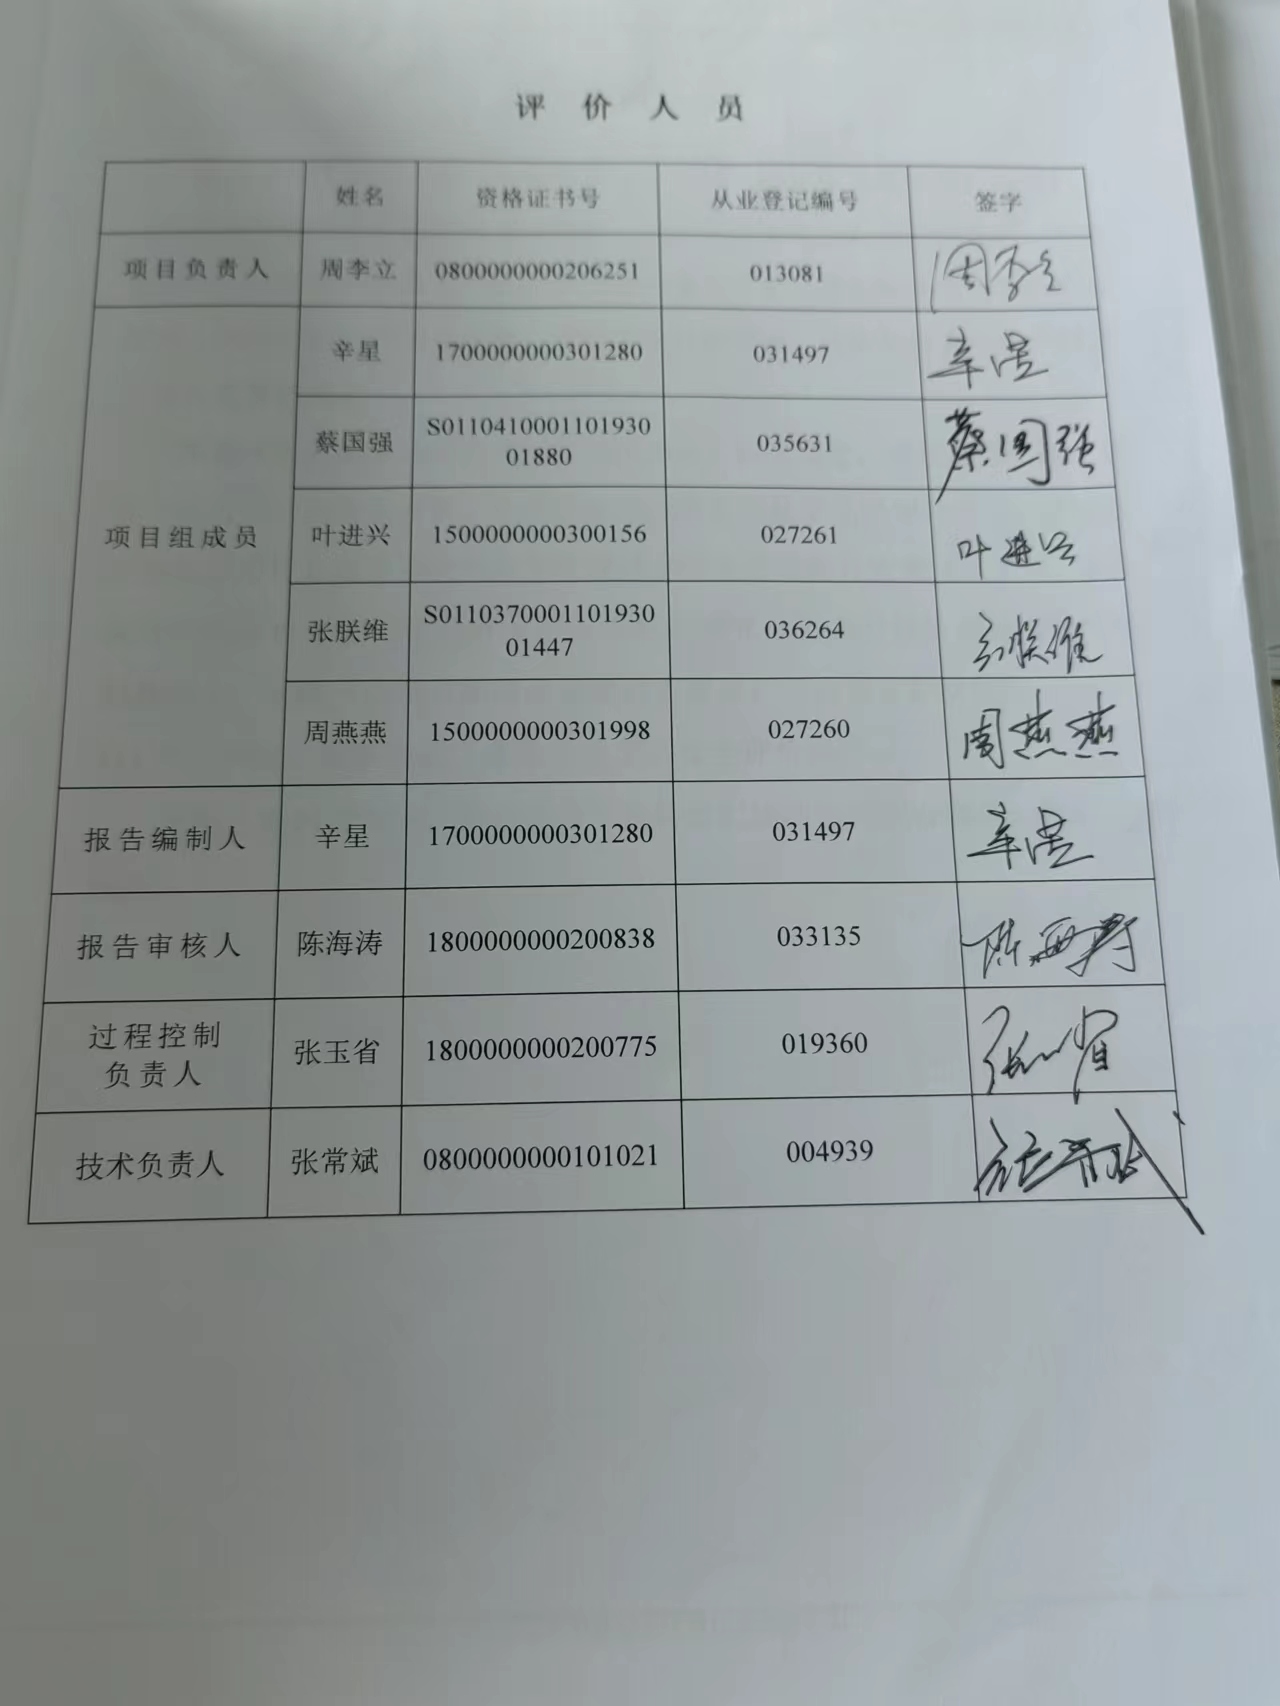 评价人员
姓名 资格证书号 从业登记编号 签字
项目负责人 周李立 0800000000206251 013081 周李立
项目组成员 辛星 1700000000301280 031497 辛星
蔡国强 S0110410001101930 035631 蔡国强
01880
叶进兴 1500000000300156 027261 叶进兴
张朕维 S0110370001101930 036264 张朕维
01447
周燕燕 1500000000301998 027260 周燕燕
报告编制人 辛星 1700000000301280 031497 辛星
报告审核人 陈海涛 1800000000200838 033135
过程控制
负责人 张玉省 1800000000200775 019360 张玉省
技术负责人 张常斌 0800000000101021 004939 张常斌